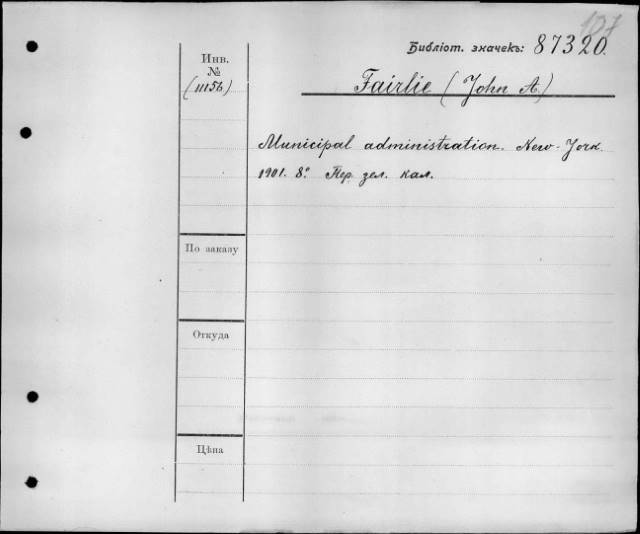 107
Библіот. значекъ: 87320.
Инв.
№
(11156)
Fairlie (John A.)
Municipal administration. New-York.
1901. 8º. Пер. зел. кал.
По заказу
Откуда
Цѣна